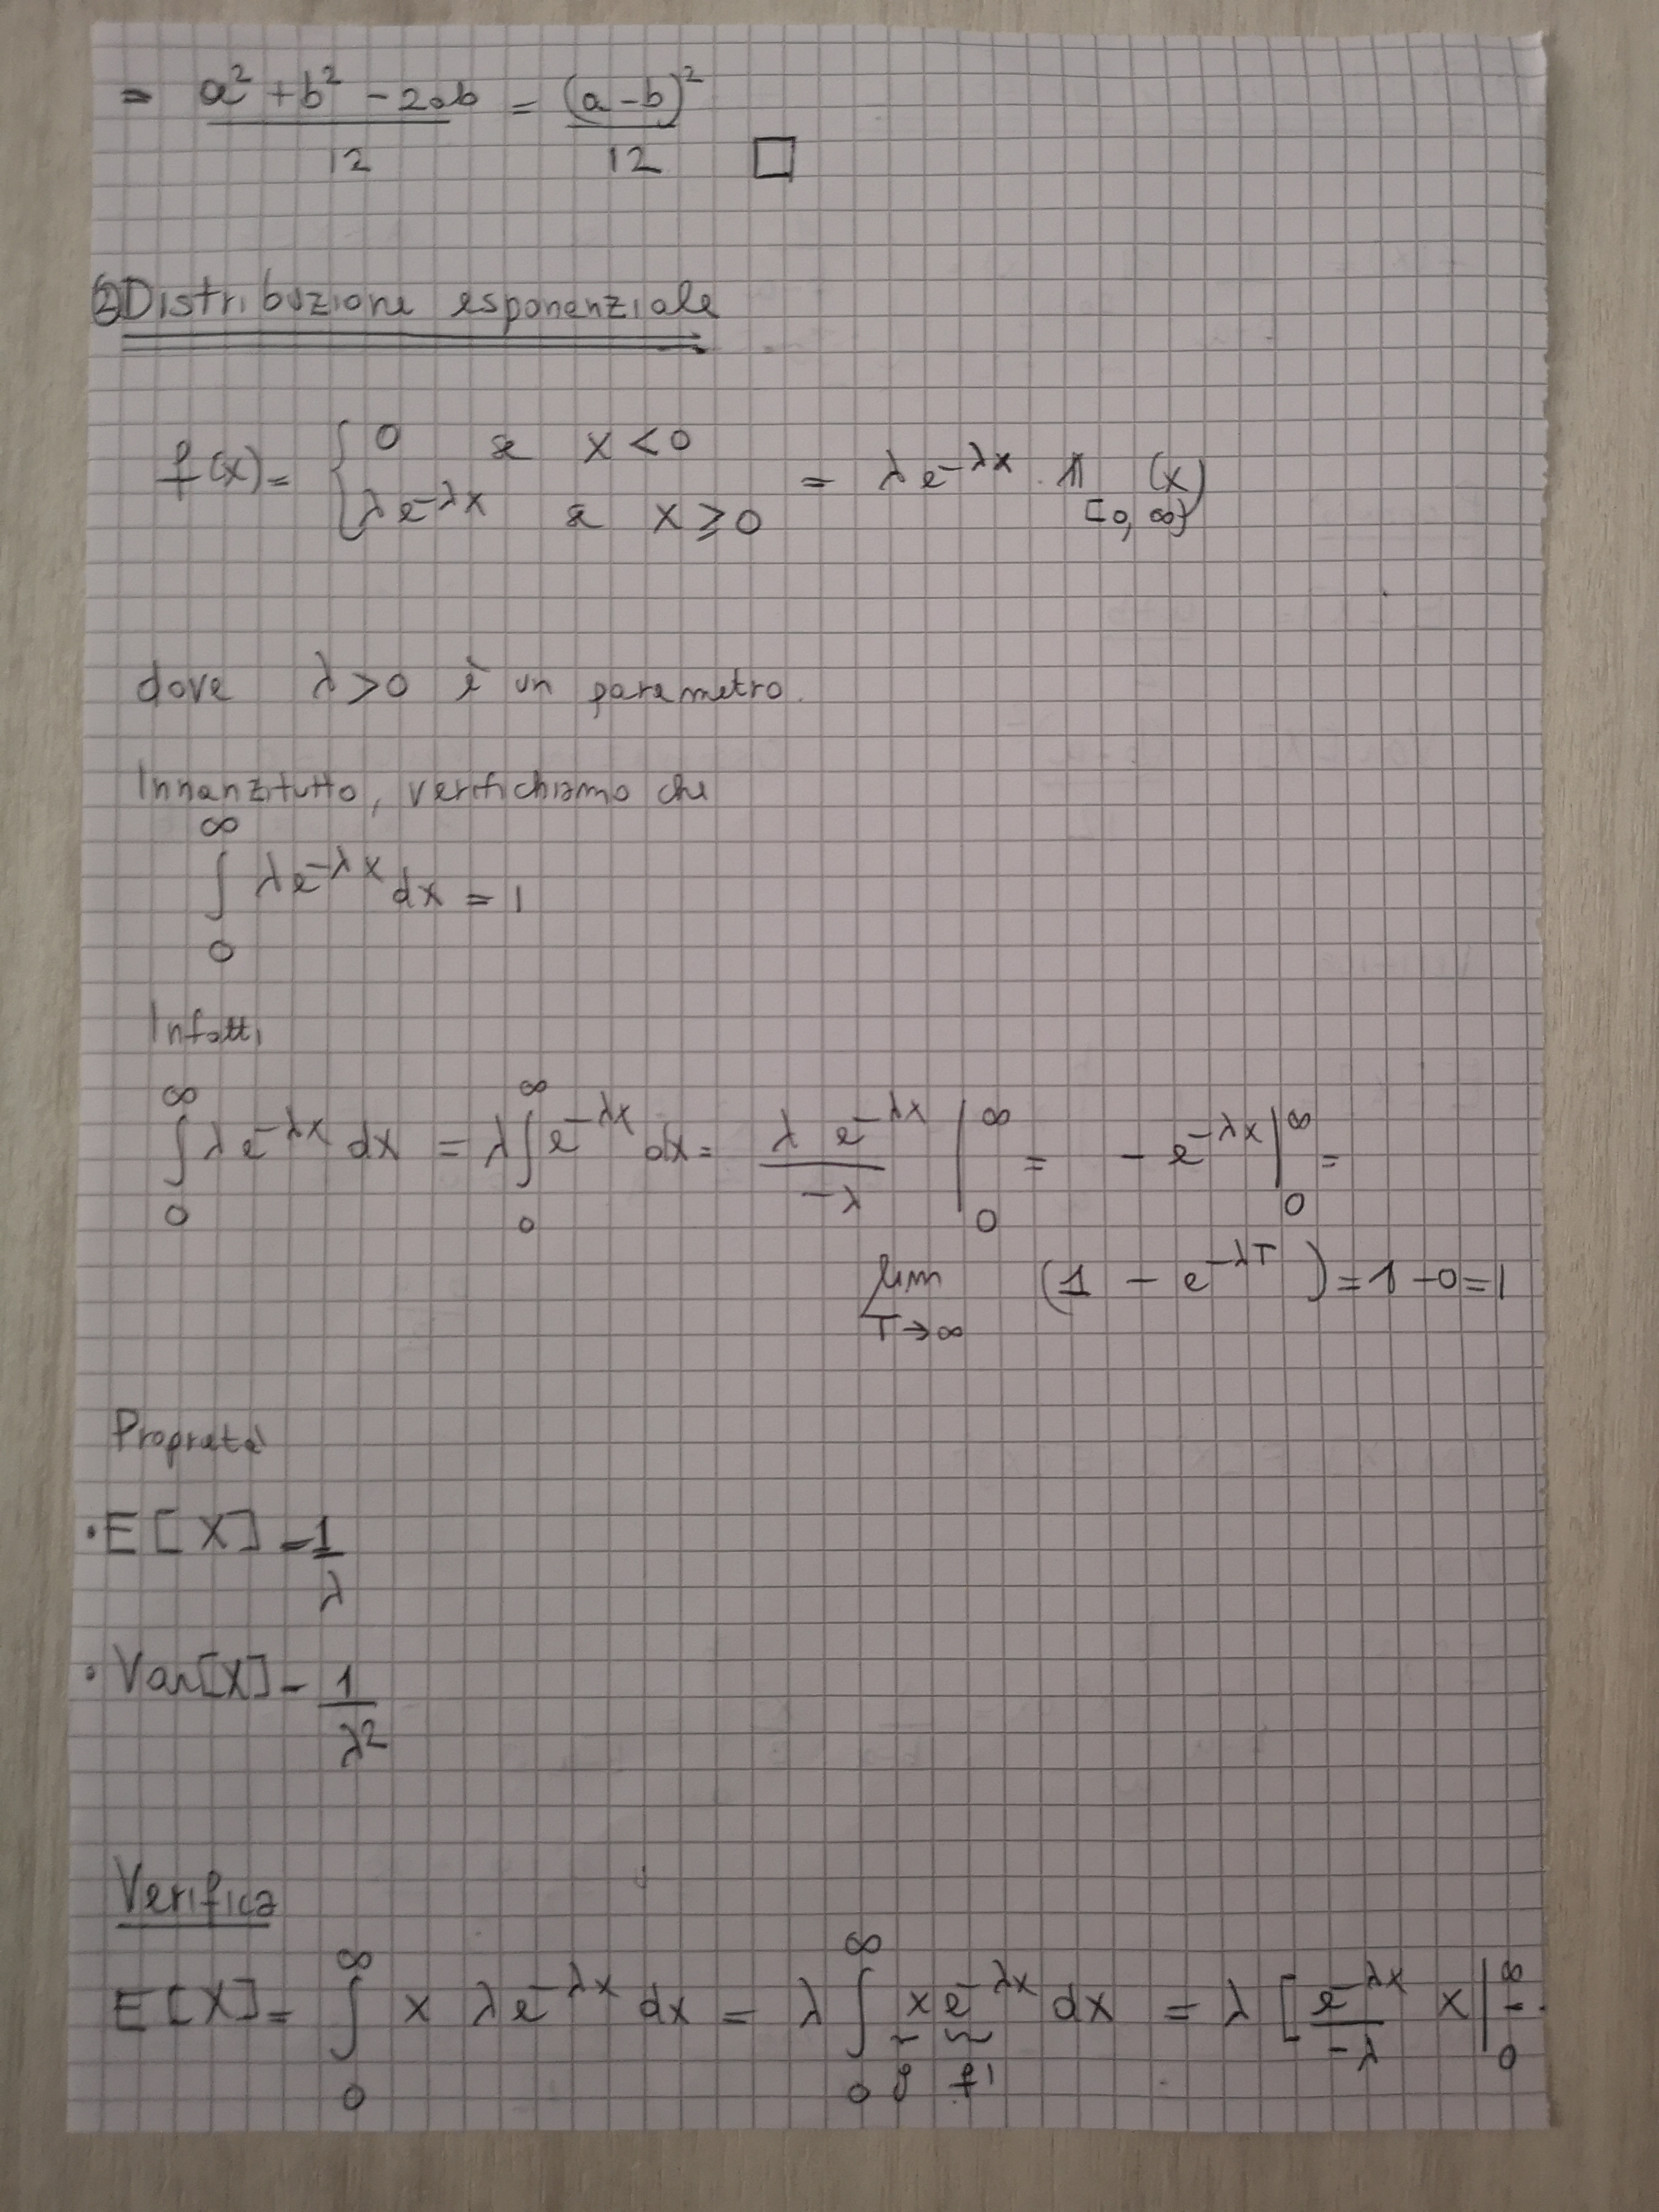 = a² + b² - 2ab / 12 = (a - b)² / 12 □
② Distribuzione esponenziale
f(x) = { 0 se x < 0
{ λe^{-λx} se x ≥ 0 = λe^{-λx} · 𝟙_{[0,∞)}(x)
dove λ > 0 è un parametro.
Innanzitutto, verifichiamo che
∫_0^∞ λe^{-λx} dx = 1
Infatti
∫_0^∞ λe^{-λx} dx = λ∫_0^∞ e^{-λx} dx = λ e^{-λx} / -λ |_0^∞ = - e^{-λx} |_0^∞ =
lim_{T→∞} (1 - e^{-λT}) = 1 - 0 = 1
Proprietà
• E[X] = 1/λ
• Var[X] = 1/λ²
Verifica
E[X] = ∫_0^∞ x λe^{-λx} dx = λ ∫_0^∞ x e^{-λx} dx = λ [ e^{-λx} / -λ x |_0^∞ -
g f'